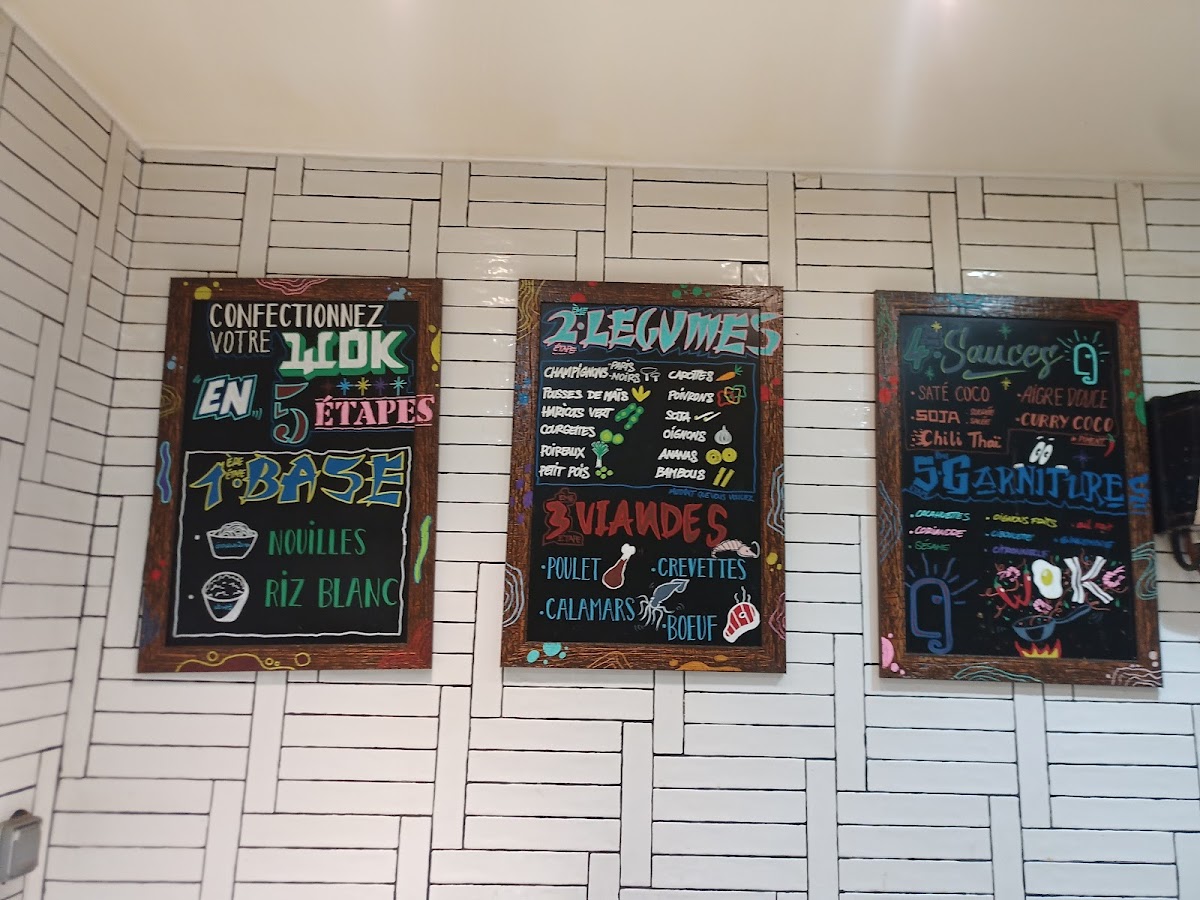 CONFECTIONNEZ
VOTRE WOK
EN 5
ÉTAPES
1ÈRE ÉTAPE BASE
NOUILLES
RIZ BLANC
2ÈME ÉTAPE LEGUMES
CHAMPIGNONS PARIS
NOIRS
POUSSES DE MAÏS
HARICOTS VERT
COURGETTES
POIREAUX
PETIT POIS
CAROTTES
POIVRONS
SOJA
OIGNONS
ANANAS
BAMBOUS
3ÈME ÉTAPE VIANDES
·POULET
·CREVETTES
·CALAMARS
·BOEUF
4 Sauces
·SATÉ COCO
·AIGRE DOUCE
·SOJA SUCRÉE
SALÉE
·CURRY COCO
·Chili Thaï
5 GARNITURES
·CACAHUETES
·OIGNONS FRITS
·CORIANDRE
·CIBOULETTE
·GINGEMBRE
·SÉSAME
·CITRONNELLE
WOK